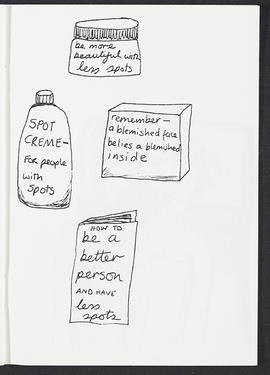 be more
beautiful with
less spots
SPOT
CREME-
FOR people
with
spots
remember-
a blemished face
belies a blemished
inside
HOW TO
be a
better
person
AND HAVE
less
spots